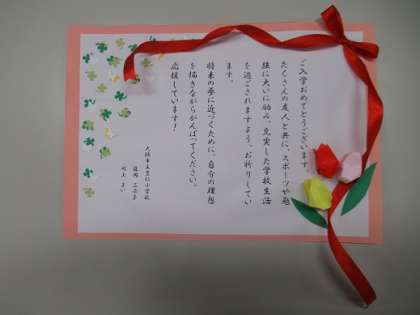 ご入学おめでとうございます。
たくさんの友人と共に、スポーツや勉
強に大いに励み、充実した学校生活
を過ごされますよう、お祈りしてい
ます。
将来の夢に近づくために、自分の理想
を描きながらがんばってください。
応援しています!